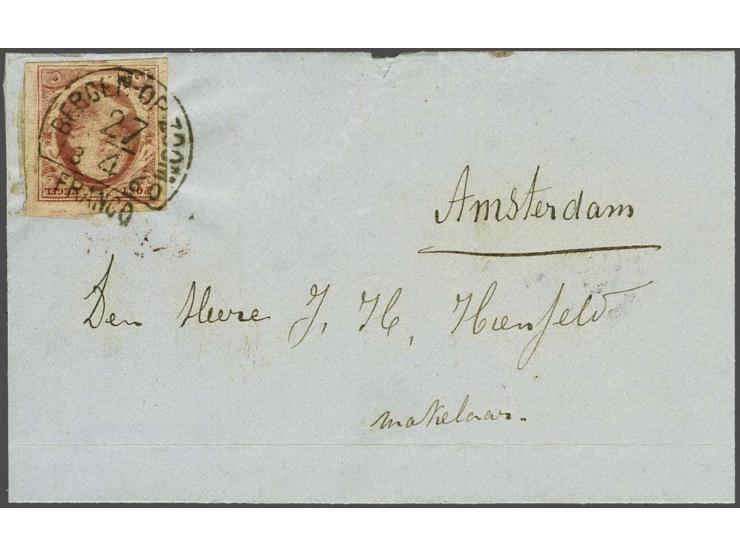 BERGEN-OP-ZOOM
27
8 4
FRANCO
POST ZEGEL
Amsterdam
Den Heere J. H. Hoenfeld
makelaar.